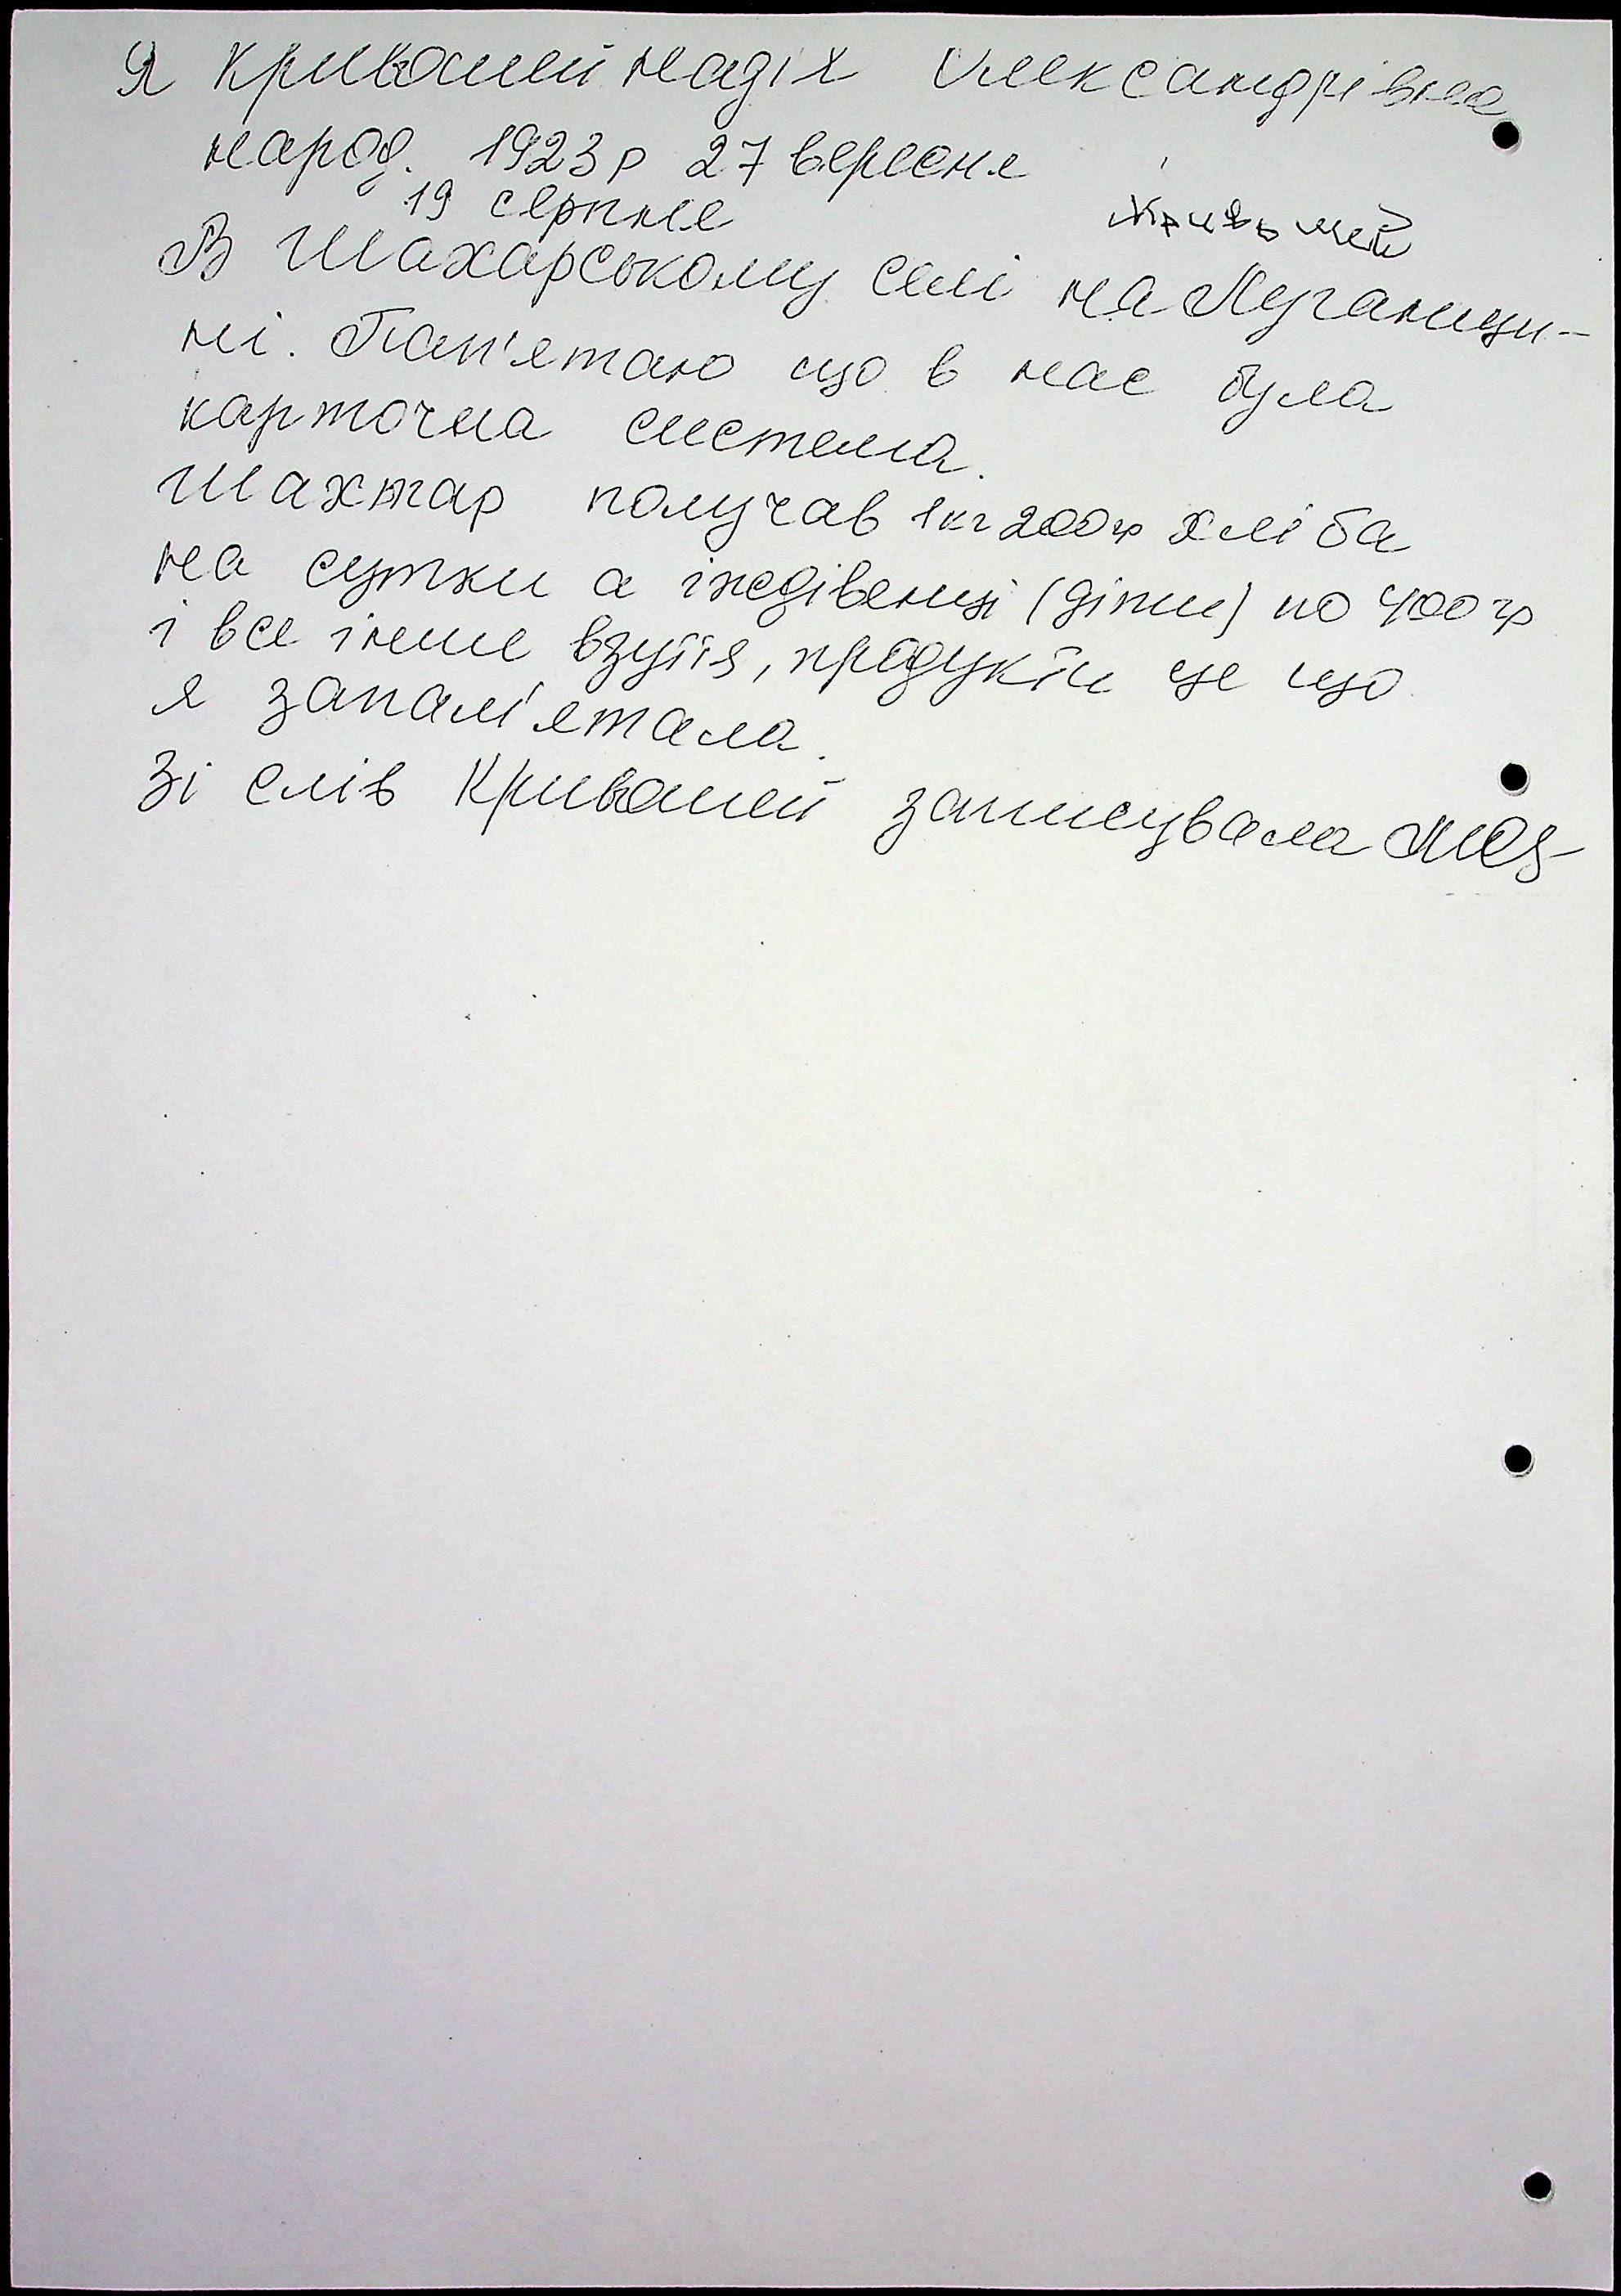 Я Кривошей Надія Олександрівна
народ. 1923 р 27 вересня
19 серпня
Кривошей
В Шахарському селі на Луганщи-
ні. Пам'ятаю що в нас була
карточна система.
Шахтар получав 1 кг 200 гр хліба
на сутки а іждівенці (діти) по 400 гр
і все інше взуття, продукти це що
я запам'ятала.
Зі слів Кривошей записувала